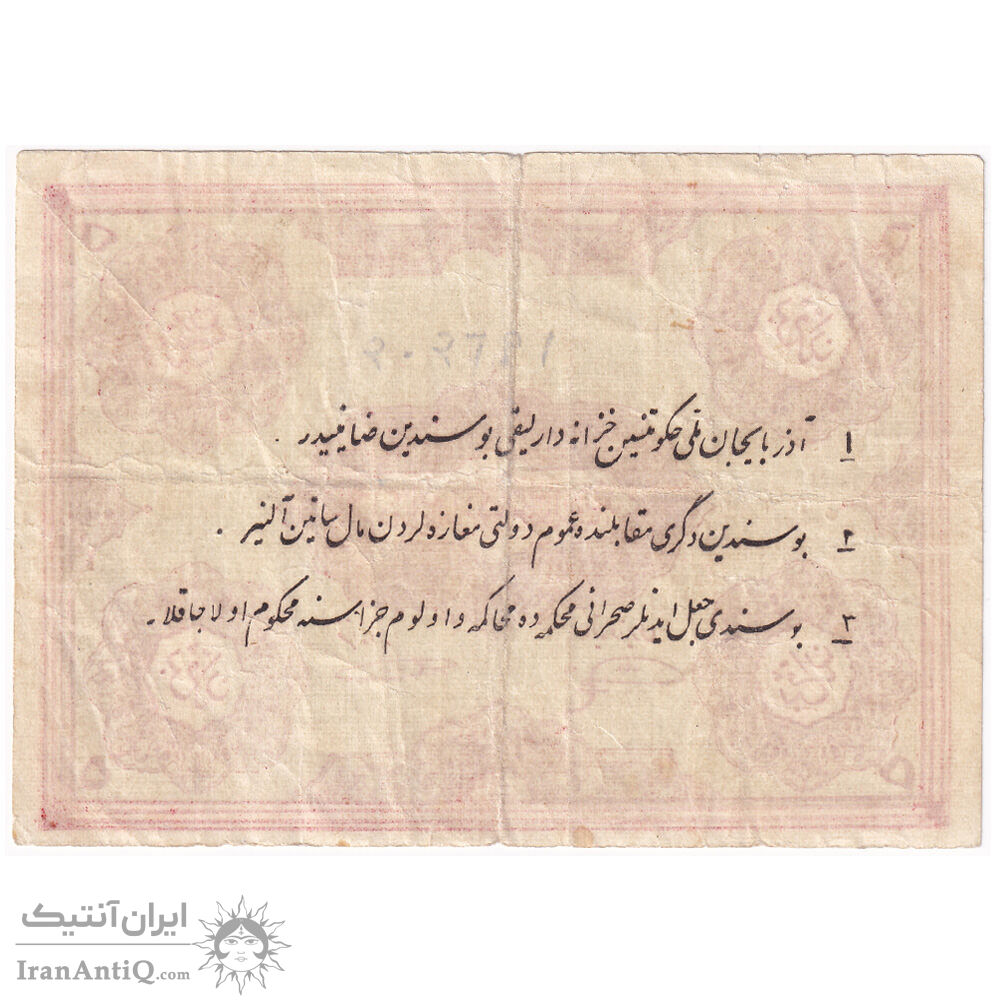 ۱ آذربایجان ملی حکومتنین خزانه داریلیقی بو سندین ضامینیدر .
۲ بو سندین دگری مقابلنده عموم دولتی مغازه لردن مال ساتین آلنیر .
۳ بو سندی جعل ایدنلر صحرائی محکمه ده محاکمه و اولوم جزاسنه محکوم اولاجاقلار .
ایران آنتیک
IranAntiQ.com